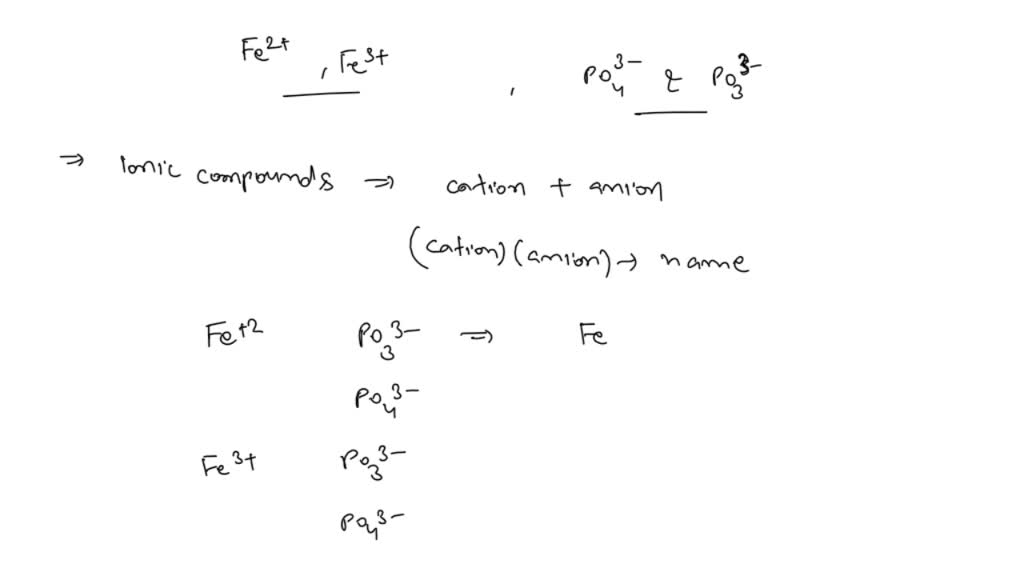 Fe²⁺ , Fe³⁺ , PO₄³⁻ & PO₃³⁻
⇒ Ionic compounds ⇒ cation + anion
(cation)(anion) → name
Fe⁺² PO₃³⁻ ⇒ Fe
PO₄³⁻
Fe³⁺ PO₃³⁻
PO₄³⁻